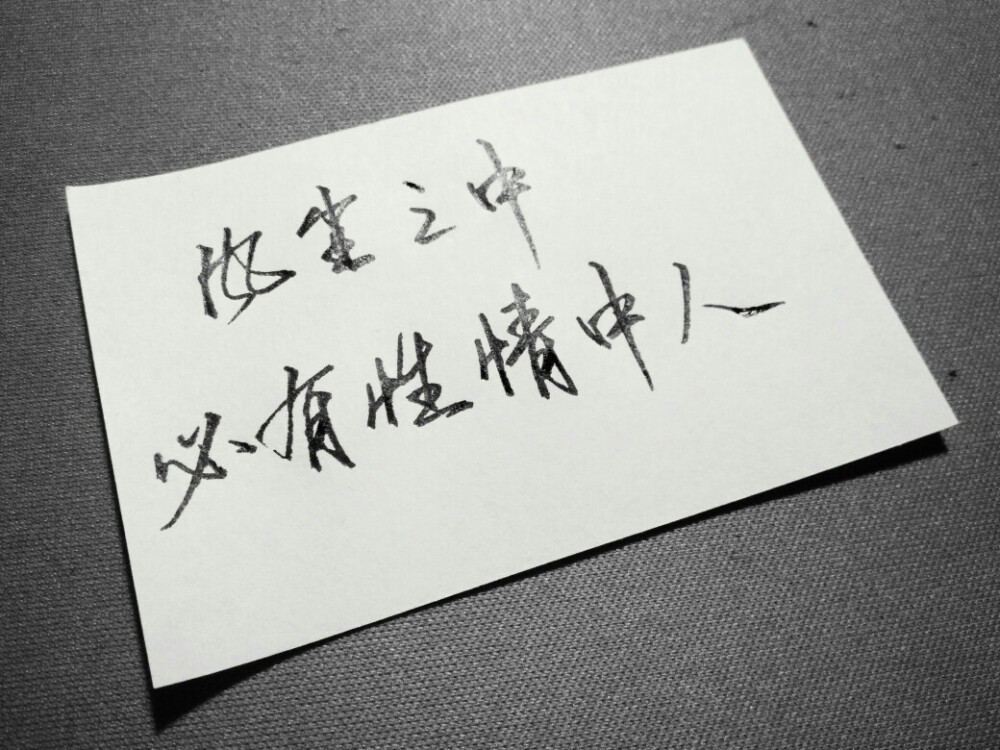 风尘之中
必有性情中人